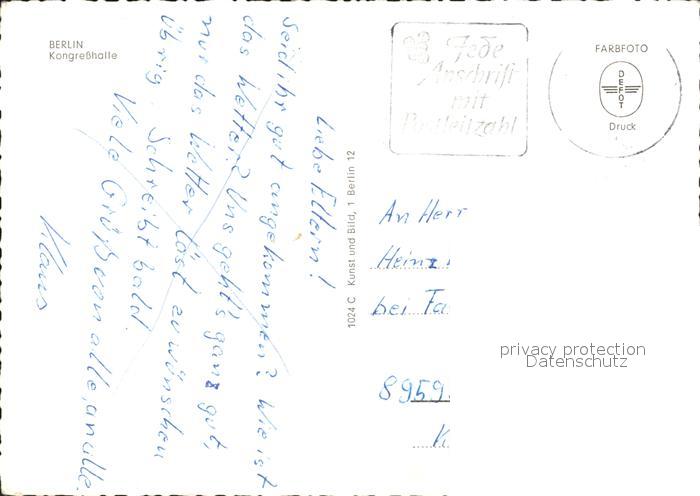 BERLIN
Kongreßhalle
Liebe Eltern!
Seid ihr gut angekommen? Wie ist
das Wetter? Uns geht's ganz gut,
nur das Wetter läßt zu wünschen
übrig. Schreibt bald.
Viele Grüße von alle, an alle.
Klaus
1024 C Kunst und Bild, 1 Berlin 12
Jede
Anschrift
mit
Postleitzahl
FARBFOTO
DEFOT
Druck
An Herr
Heinz
bei Fa
privacy protection
Datenschutz
8959